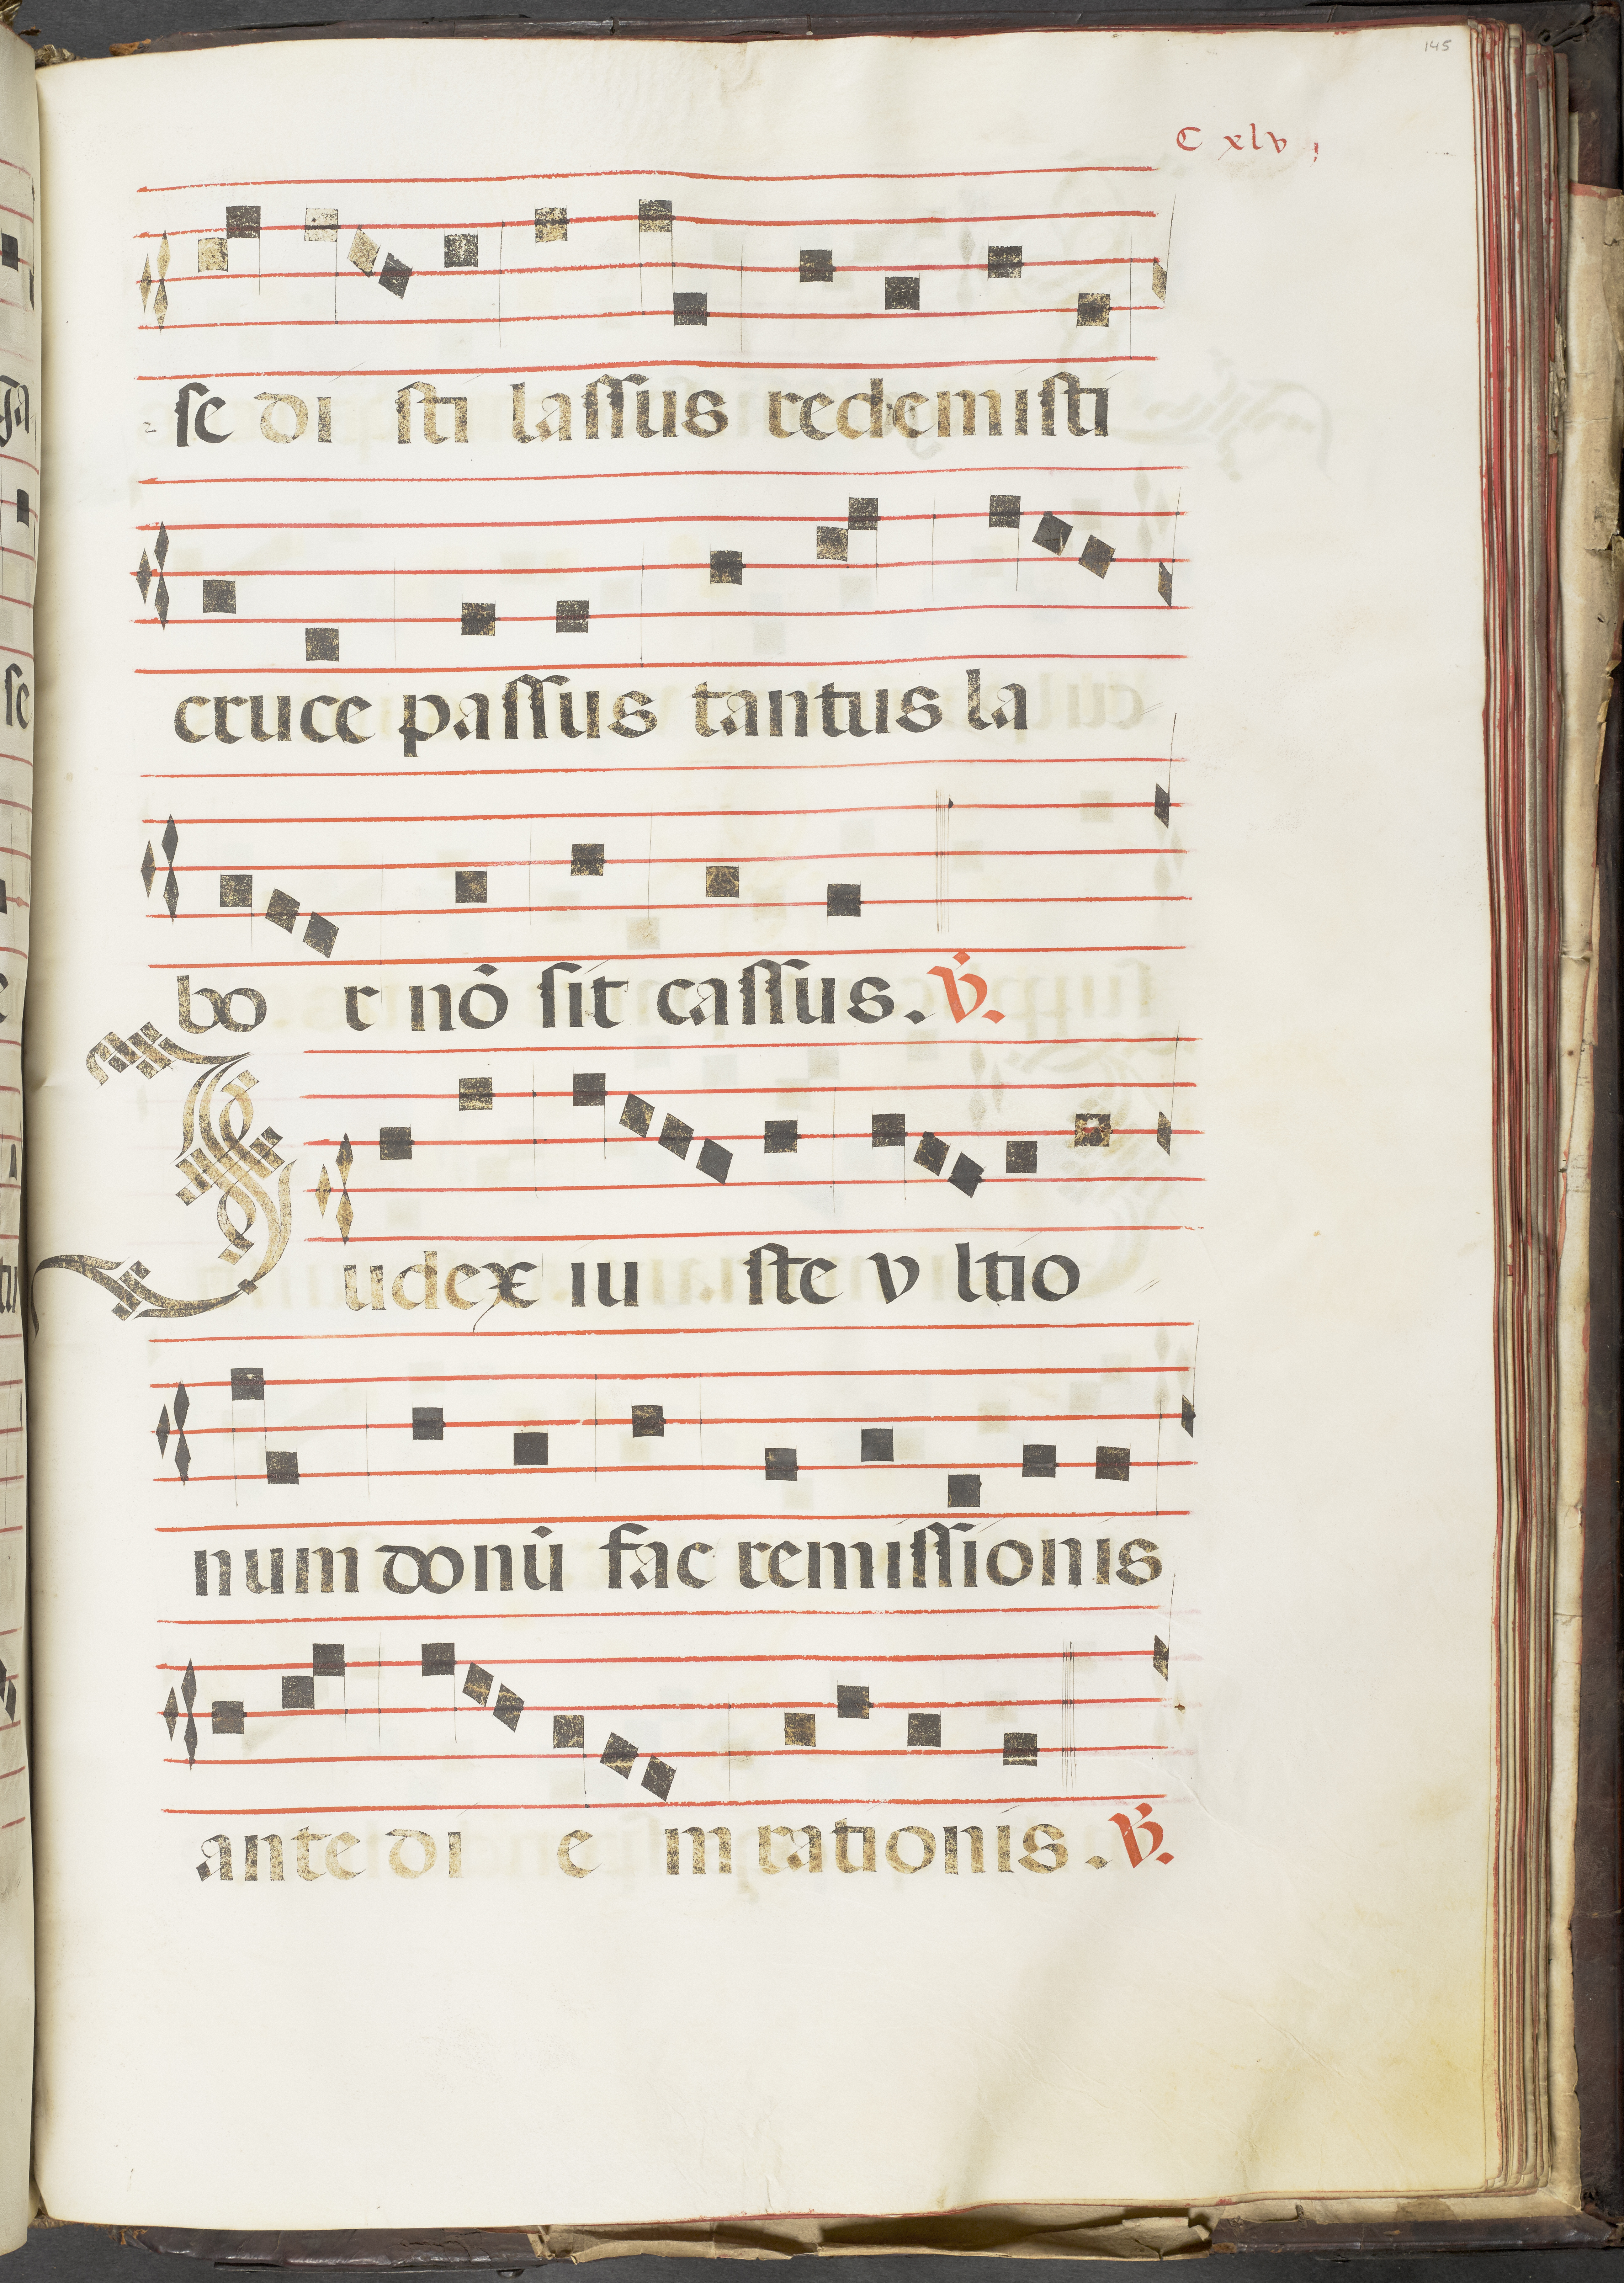 145
C xlv
se di sti lassus redemisti
cruce passus tantus la
bo r nō sit cassus. V.
Iudex iu ste v ltio
num donū fac remissionis
ante di e m rationis. V.